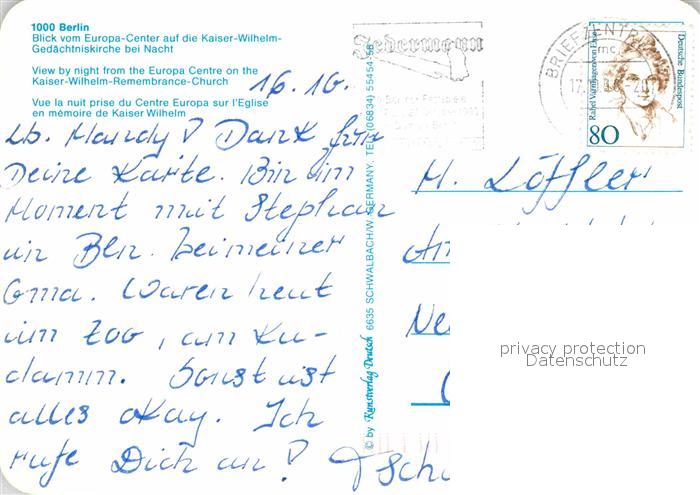 1000 Berlin
Blick vom Europa-Center auf die Kaiser-Wilhelm-
Gedächtniskirche bei Nacht
View by night from the Europa Centre on the
Kaiser-Wilhelm-Remembrance-Church
Vue la nuit prise du Centre Europa sur l'Eglise
en mémoire de Kaiser Wilhelm
16.10.
Lb. Mandy! Dank für
Deine Karte. Bin im
Moment mit Stephan
in Bln. bei meiner
Oma. Waren heut
im Zoo, am Ku-
damm. Sonst ist
alles okay. Ich
rufe Dich an! Tschü
© by Kunstverlag Deutsch 6635 SCHWALBACH/W. GERMANY. TEL. (06834) 55454-56
Jedermann
BRIEFZENTR
mc
17.
Rahel Varnhagen von Ense
Deutsche Bundespost
80
M. Löffler
Am
Ne
privacy protection
Datenschutz